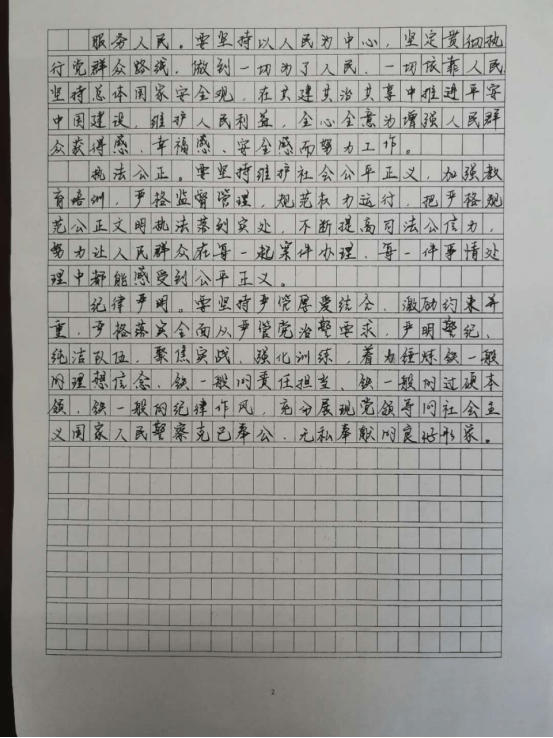 服务人民。要坚持以人民为中心，坚定贯彻执
行党群众路线，做到一切为了人民、一切依靠人民，
坚持总体国家安全观，在共建共治共享中推进平安
中国建设，维护人民利益，全心全意为增强人民群
众获得感、幸福感、安全感而努力工作。
执法公正。要坚持维护社会公平正义，加强教
育培训，严格监督管理，规范权力运行，把严格规
范公正文明执法落到实处，不断提高司法公信力，
努力让人民群众在每一起案件办理、每一件事情处
理中都能感受到公平正义。
纪律严明。要坚持严管厚爱结合、激励约束并
重，严格落实全面从严管党治警要求，严明警纪、
纯洁队伍，聚焦实战、强化训练，着力锤炼铁一般
的理想信念、铁一般的责任担当、铁一般的过硬本
领、铁一般的纪律作风，充分展现党领导的社会主
义国家人民警察克己奉公、无私奉献的良好形象。
2